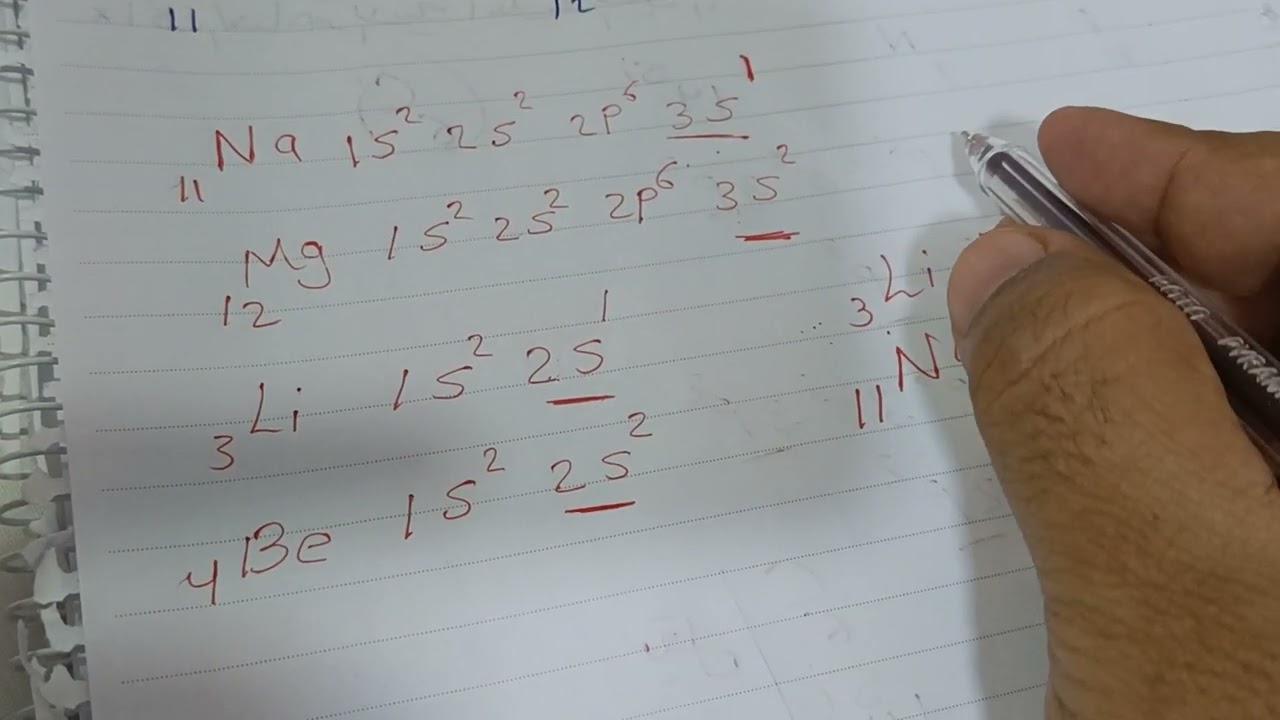 11 12
₁₁Na 1s² 2s² 2p⁶ 3s¹
₁₂Mg 1s² 2s² 2p⁶ 3s²
₃Li 1s² 2s¹
₄Be 1s² 2s²
₃Li
₁₁N